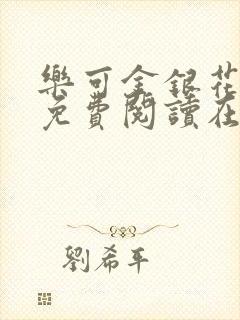 樂可金銀花
免費閱讀在
劉希平